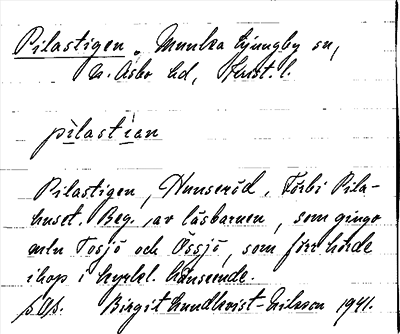 Pilastigen, Munka Ljungby sn,
N. Åsbo hd, Krist. l.
pilastian
Pilastigen, Hunseröd. Förbi Pila-
huset. Beg. av läsbarnen, som gingo
mln Tosjö och Össjö, som förr hörde
ihop i kyrkl. hänseende.
Birgit Lundkvist-Eriksson 1941.